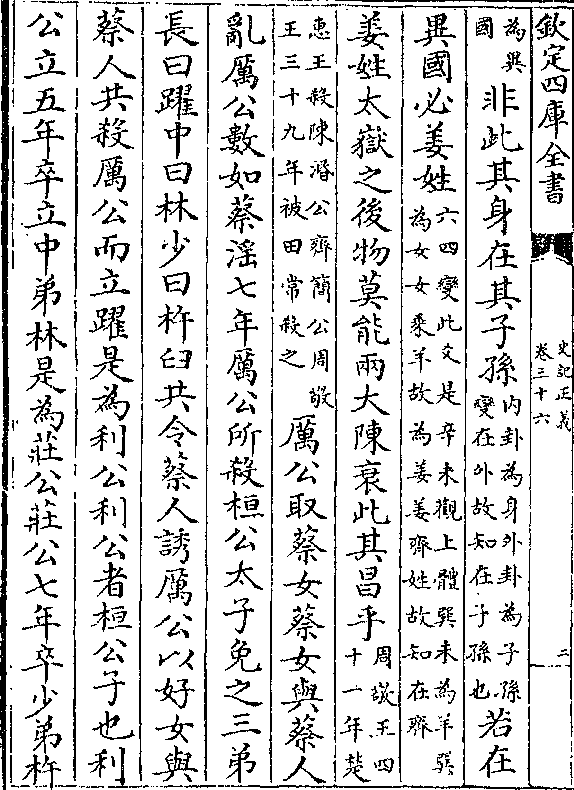 欽定四庫全書
史記正義
卷三十六
三
為異
國
非此其身在其子孫
内卦為身外卦為子孫
變在外故知在子孫也
若在
異國必姜姓
六四變此爻是辛未觀上體巽未為羊巽
為女女乘羊故為姜姜齊姓故知在齊
姜姓太嶽之後物莫能兩大陳衰此其昌乎
周敬王四
十一年楚
惠王殺陳湣公齊簡公周敬
王三十九年被田常殺之
厲公取蔡女蔡女與蔡人
亂厲公數如蔡淫七年厲公所殺桓公太子免之三弟
長曰躍中曰林少曰杵臼共令蔡人誘厲公以好女與
蔡人共殺厲公而立躍是為利公利公者桓公子也利
公立五年卒立中弟林是為莊公莊公七年卒少弟杵